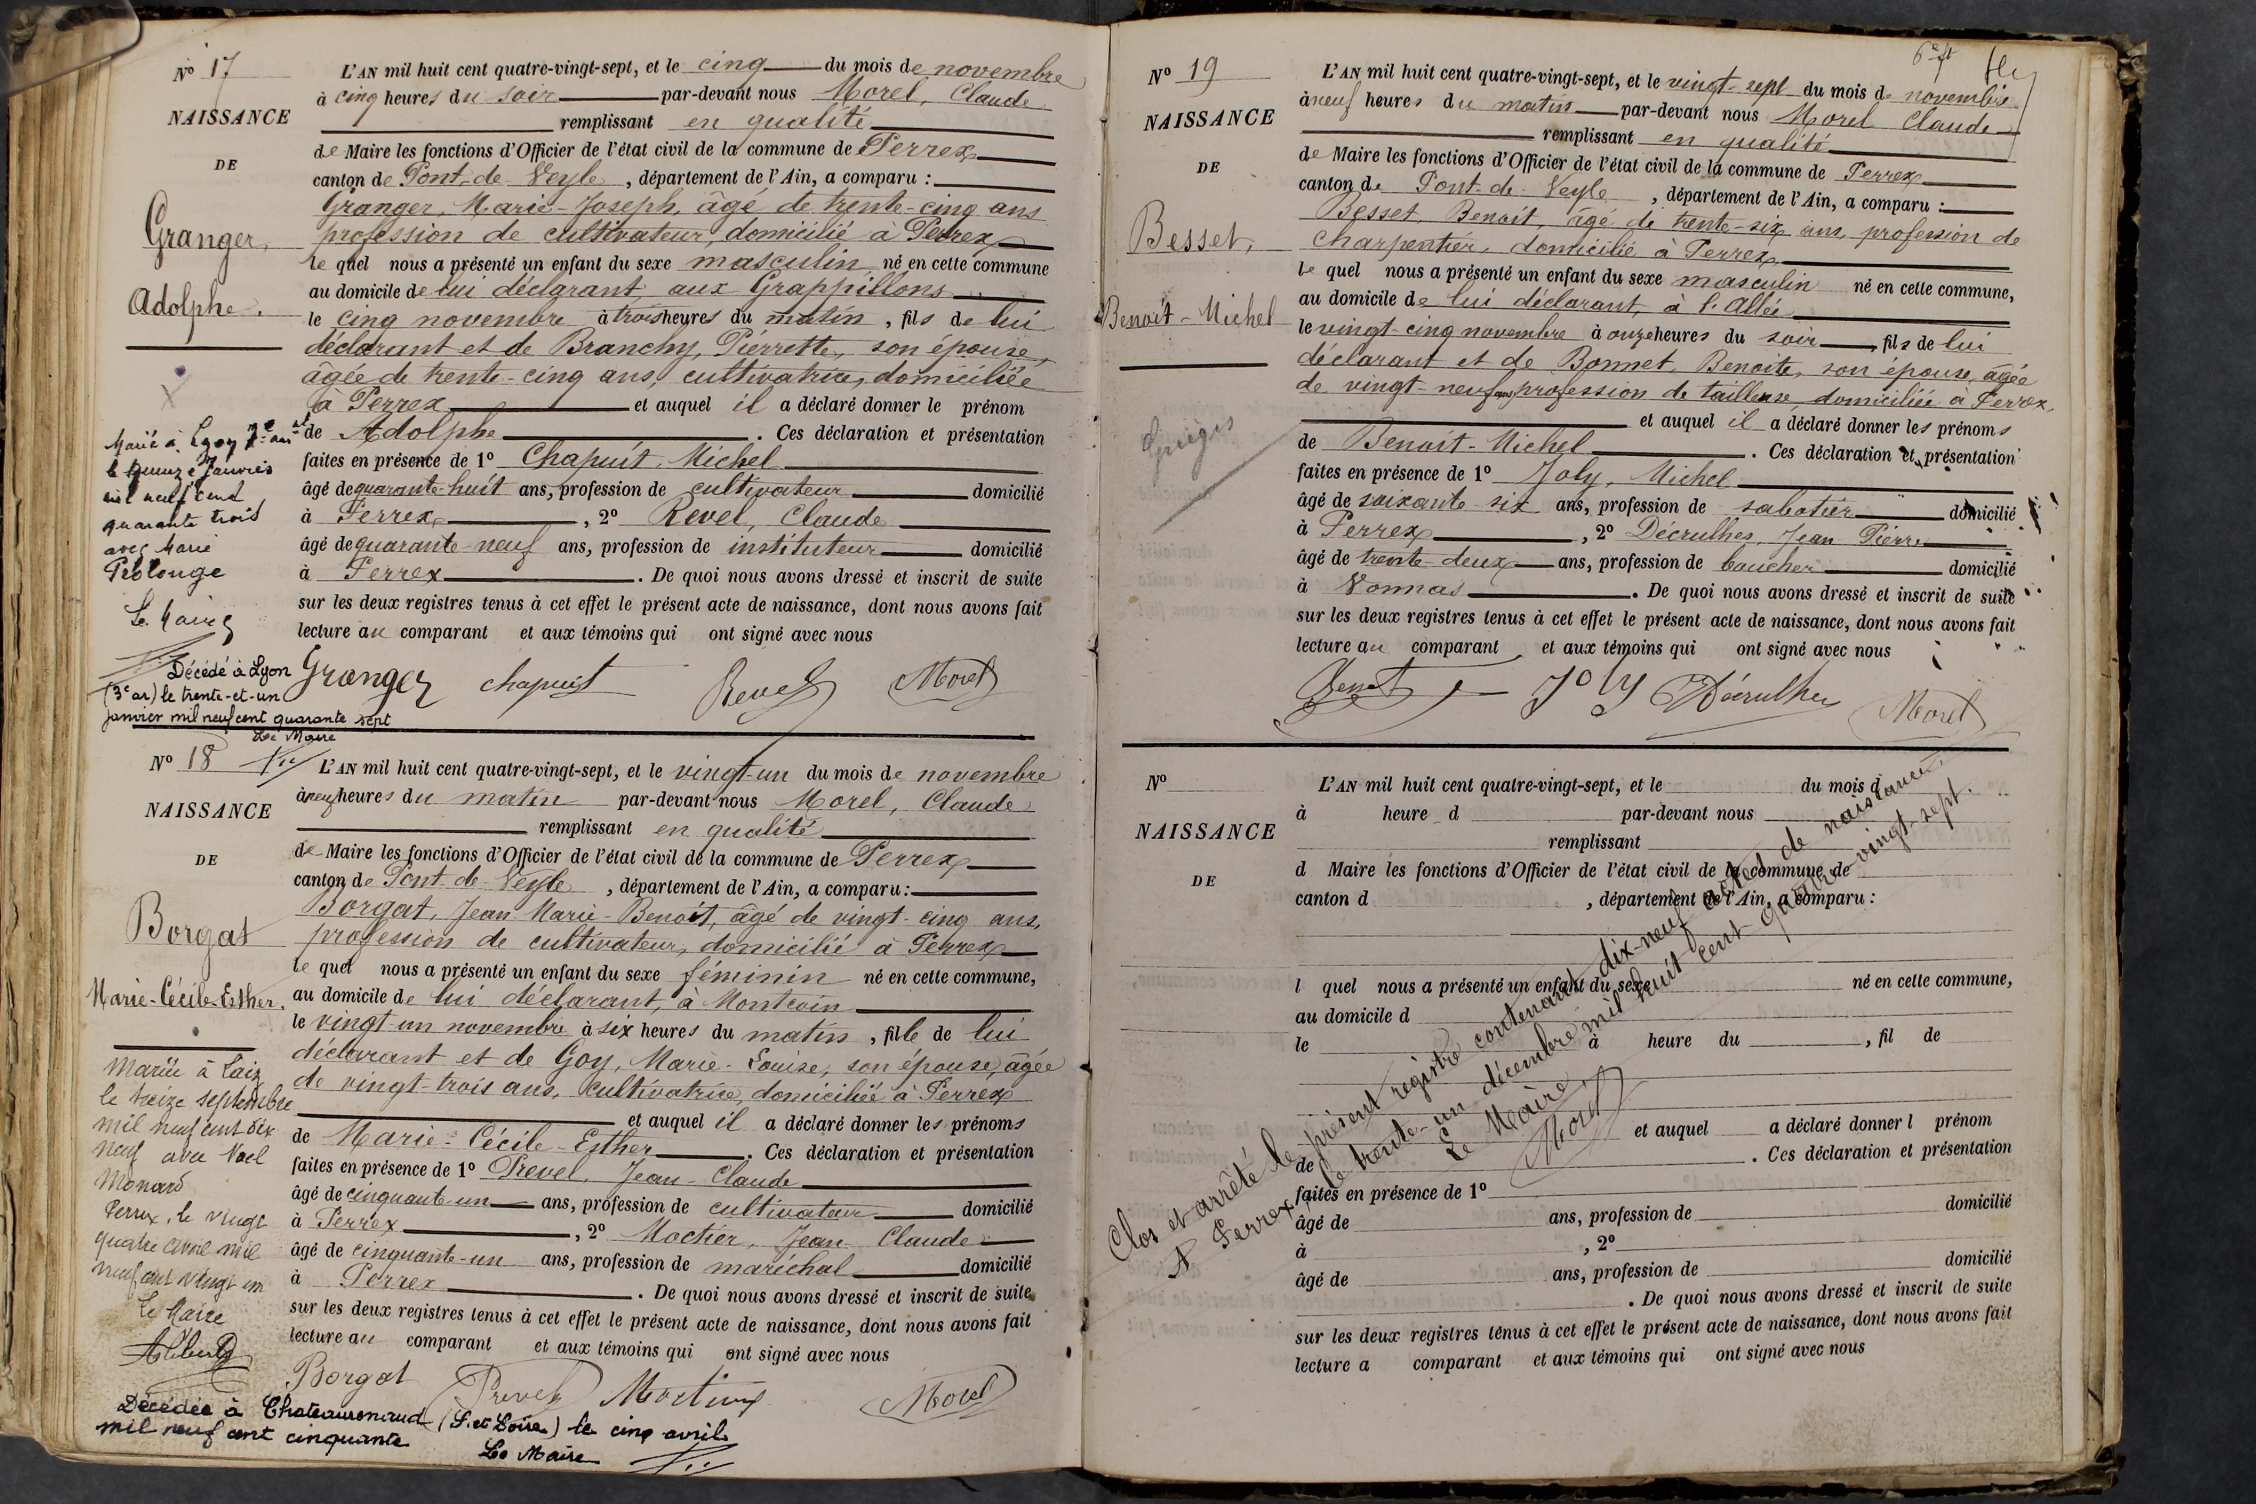 Nº 17
NAISSANCE
DE
Granger,
Adolphe.
L'AN mil huit cent quatre-vingt-sept, et le cinq du mois de novembre
à cinq heures du soir par-devant nous Morel, Claude
remplissant en qualité
de Maire les fonctions d'Officier de l'état civil de la commune de Perrex
canton de Pont-de-Veyle, département de l'Ain, a comparu :
Granger, Marie-Joseph, âgé de trente-cinq ans
profession de cultivateur, domicilié à Perrex
le quel nous a présenté un enfant du sexe masculin né en cette commune
au domicile de lui déclarant aux Grappillons
le cinq novembre à trois heures du matin, fils de lui
déclarant et de Branchy, Pierrette, son épouse,
âgée de trente-cinq ans, cultivatrice, domiciliée
à Perrex et auquel il a déclaré donner le prénom
de Adolphe. Ces déclaration et présentation
faites en présence de 1º Chapuit, Michel
âgé de quarante-huit ans, profession de cultivateur domicilié
à Perrex, 2º Revel, Claude
âgé de quarante-neuf ans, profession de instituteur domicilié
à Perrex. De quoi nous avons dressé et inscrit de suite
sur les deux registres tenus à cet effet le présent acte de naissance, dont nous avons fait
lecture au comparant et aux témoins qui ont signé avec nous
Granger Chapuit Revel Morel
Marié à Lyon 7e arr
le quinze Janvier
mil neuf cent
quarante trois
avec Marie
Prolonge
Le Maire
Décédé à Lyon
(3e ar) le trente-et-un
janvier mil neuf cent quarante sept
Le Maire
Nº 18
NAISSANCE
DE
Borgat
Marie-Cécile-Esther.
L'AN mil huit cent quatre-vingt-sept, et le vingt-un du mois de novembre
à neuf heures du matin par-devant nous Morel, Claude
remplissant en qualité
de Maire les fonctions d'Officier de l'état civil de la commune de Perrex
canton de Pont-de-Veyle, département de l'Ain, a comparu :
Borgat, Jean-Marie-Benoît, âgé de vingt-cinq ans,
profession de cultivateur, domicilié à Perrex
le quel nous a présenté un enfant du sexe féminin né en cette commune,
au domicile de lui déclarant, à Montcoin
le vingt-un novembre à six heures du matin, fille de lui
déclarant et de Goy, Marie-Louise, son épouse, âgée
de vingt-trois ans, cultivatrice, domiciliée à Perrex
et auquel il a déclaré donner les prénoms
de Marie-Cécile-Esther. Ces déclaration et présentation
faites en présence de 1º Prevel, Jean-Claude
âgé de cinquante-un ans, profession de cultivateur domicilié
à Perrex, 2º Moctier, Jean Claude
âgé de cinquante-un ans, profession de maréchal domicilié
à Perrex. De quoi nous avons dressé et inscrit de suite
sur les deux registres tenus à cet effet le présent acte de naissance, dont nous avons fait
lecture au comparant et aux témoins qui ont signé avec nous
Borgat Prevel Moctier Morel
Mariée à Laiz
le treize septembre
mil neuf cent dix
neuf avec Noël
Monard
Perrex, le vingt
quatre avril mil
neuf cent vingt un
Le Maire
Décédée à Chateaurenaud (S. et Loire) le cinq avril
mil neuf cent cinquante
Le Maire
Nº 19
NAISSANCE
DE
Besset,
Benoit-Michel
Grièges
L'AN mil huit cent quatre-vingt-sept, et le vingt-sept du mois de novembre
à neuf heures du matin par-devant nous Morel Claude
remplissant en qualité
de Maire les fonctions d'Officier de l'état civil de la commune de Perrex
canton de Pont-de-Veyle, département de l'Ain, a comparu :
Besset Benoit, âgé de trente-six ans, profession de
charpentier, domicilié à Perrex
le quel nous a présenté un enfant du sexe masculin né en cette commune,
au domicile de lui déclarant, à l'Allée
le vingt-cinq novembre à onze heures du soir, fils de lui
déclarant et de Bonnet, Benoite, son épouse, âgée
de vingt-neuf ans, profession de tailleuse, domiciliée à Perrex,
et auquel il a déclaré donner les prénoms
de Benoit-Michel. Ces déclaration et présentation
faites en présence de 1º Joly, Michel
âgé de soixante-six ans, profession de sabotier domicilié
à Perrex, 2º Décrulhes, Jean Pierre
âgé de trente-deux ans, profession de boucher domicilié
à Vonnas. De quoi nous avons dressé et inscrit de suite
sur les deux registres tenus à cet effet le présent acte de naissance, dont nous avons fait
lecture au comparant et aux témoins qui ont signé avec nous
Joly Morel
Nº
NAISSANCE
DE
L'AN mil huit cent quatre-vingt-sept, et le du mois d
à heure d par-devant nous
remplissant
d Maire les fonctions d'Officier de l'état civil de la commune de
canton d , département de l'Ain, a comparu :
l quel nous a présenté un enfant du sexe né en cette commune,
au domicile d
le à heure du , fil de
et auquel a déclaré donner l prénom
de . Ces déclaration et présentation
faites en présence de 1º
âgé de ans, profession de domicilié
à , 2º
âgé de ans, profession de domicilié
. De quoi nous avons dressé et inscrit de suite
sur les deux registres tenus à cet effet le présent acte de naissance, dont nous avons fait
lecture a comparant et aux témoins qui ont signé avec nous
Clos et arrêté le présent registre contenant dix-neuf actes de naissance,
A Perrex, le trente-un décembre mil huit cent quatre-vingt-sept.
Le Maire
Morel